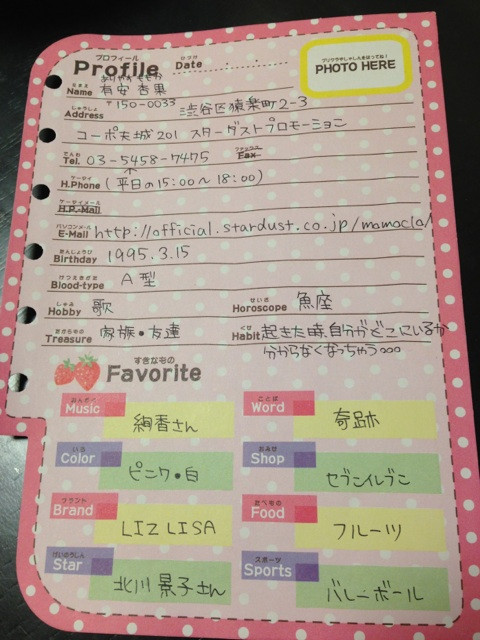 プロフィール ひづけ
Profile Date
プリクラやしゃしんをはってね!
PHOTO HERE
ありやす ももか
なまえ
Name 有安 杏果
じゅうしょ
Address 〒150-0033 渋谷区猿楽町2-3
コーポ天城201 スターダストプロモーション
でんわ ファックス
Tel. 03-5458-7475 Fax
ケーせイ
H.Phone (平日の15:00〜18:00)
ケーせイメール
H.P.-Mail
パソコンメール
E-Mail http://official.stardust.co.jp/momoclo/
たんじょうび
Birthday 1995.3.15
けつえきがた
Blood-type A型
しゅみ せいざ
Hobby 歌 Horoscope 魚座
たからもの くせ
Treasure 家族・友達 Habit 起きた時、自分がどこにいるか
分からなくなっちゃう。。。
すきなもの
Favorite
おんがく ことば
Music 絢香さん Word 奇跡
いろ おみせ
Color ピンク・白 Shop セブンイレブン
ブランド たべもの
Brand LIZ LISA Food フルーツ
げいのうじん スポーツ
Star 北川 景子さん Sports バレーボール